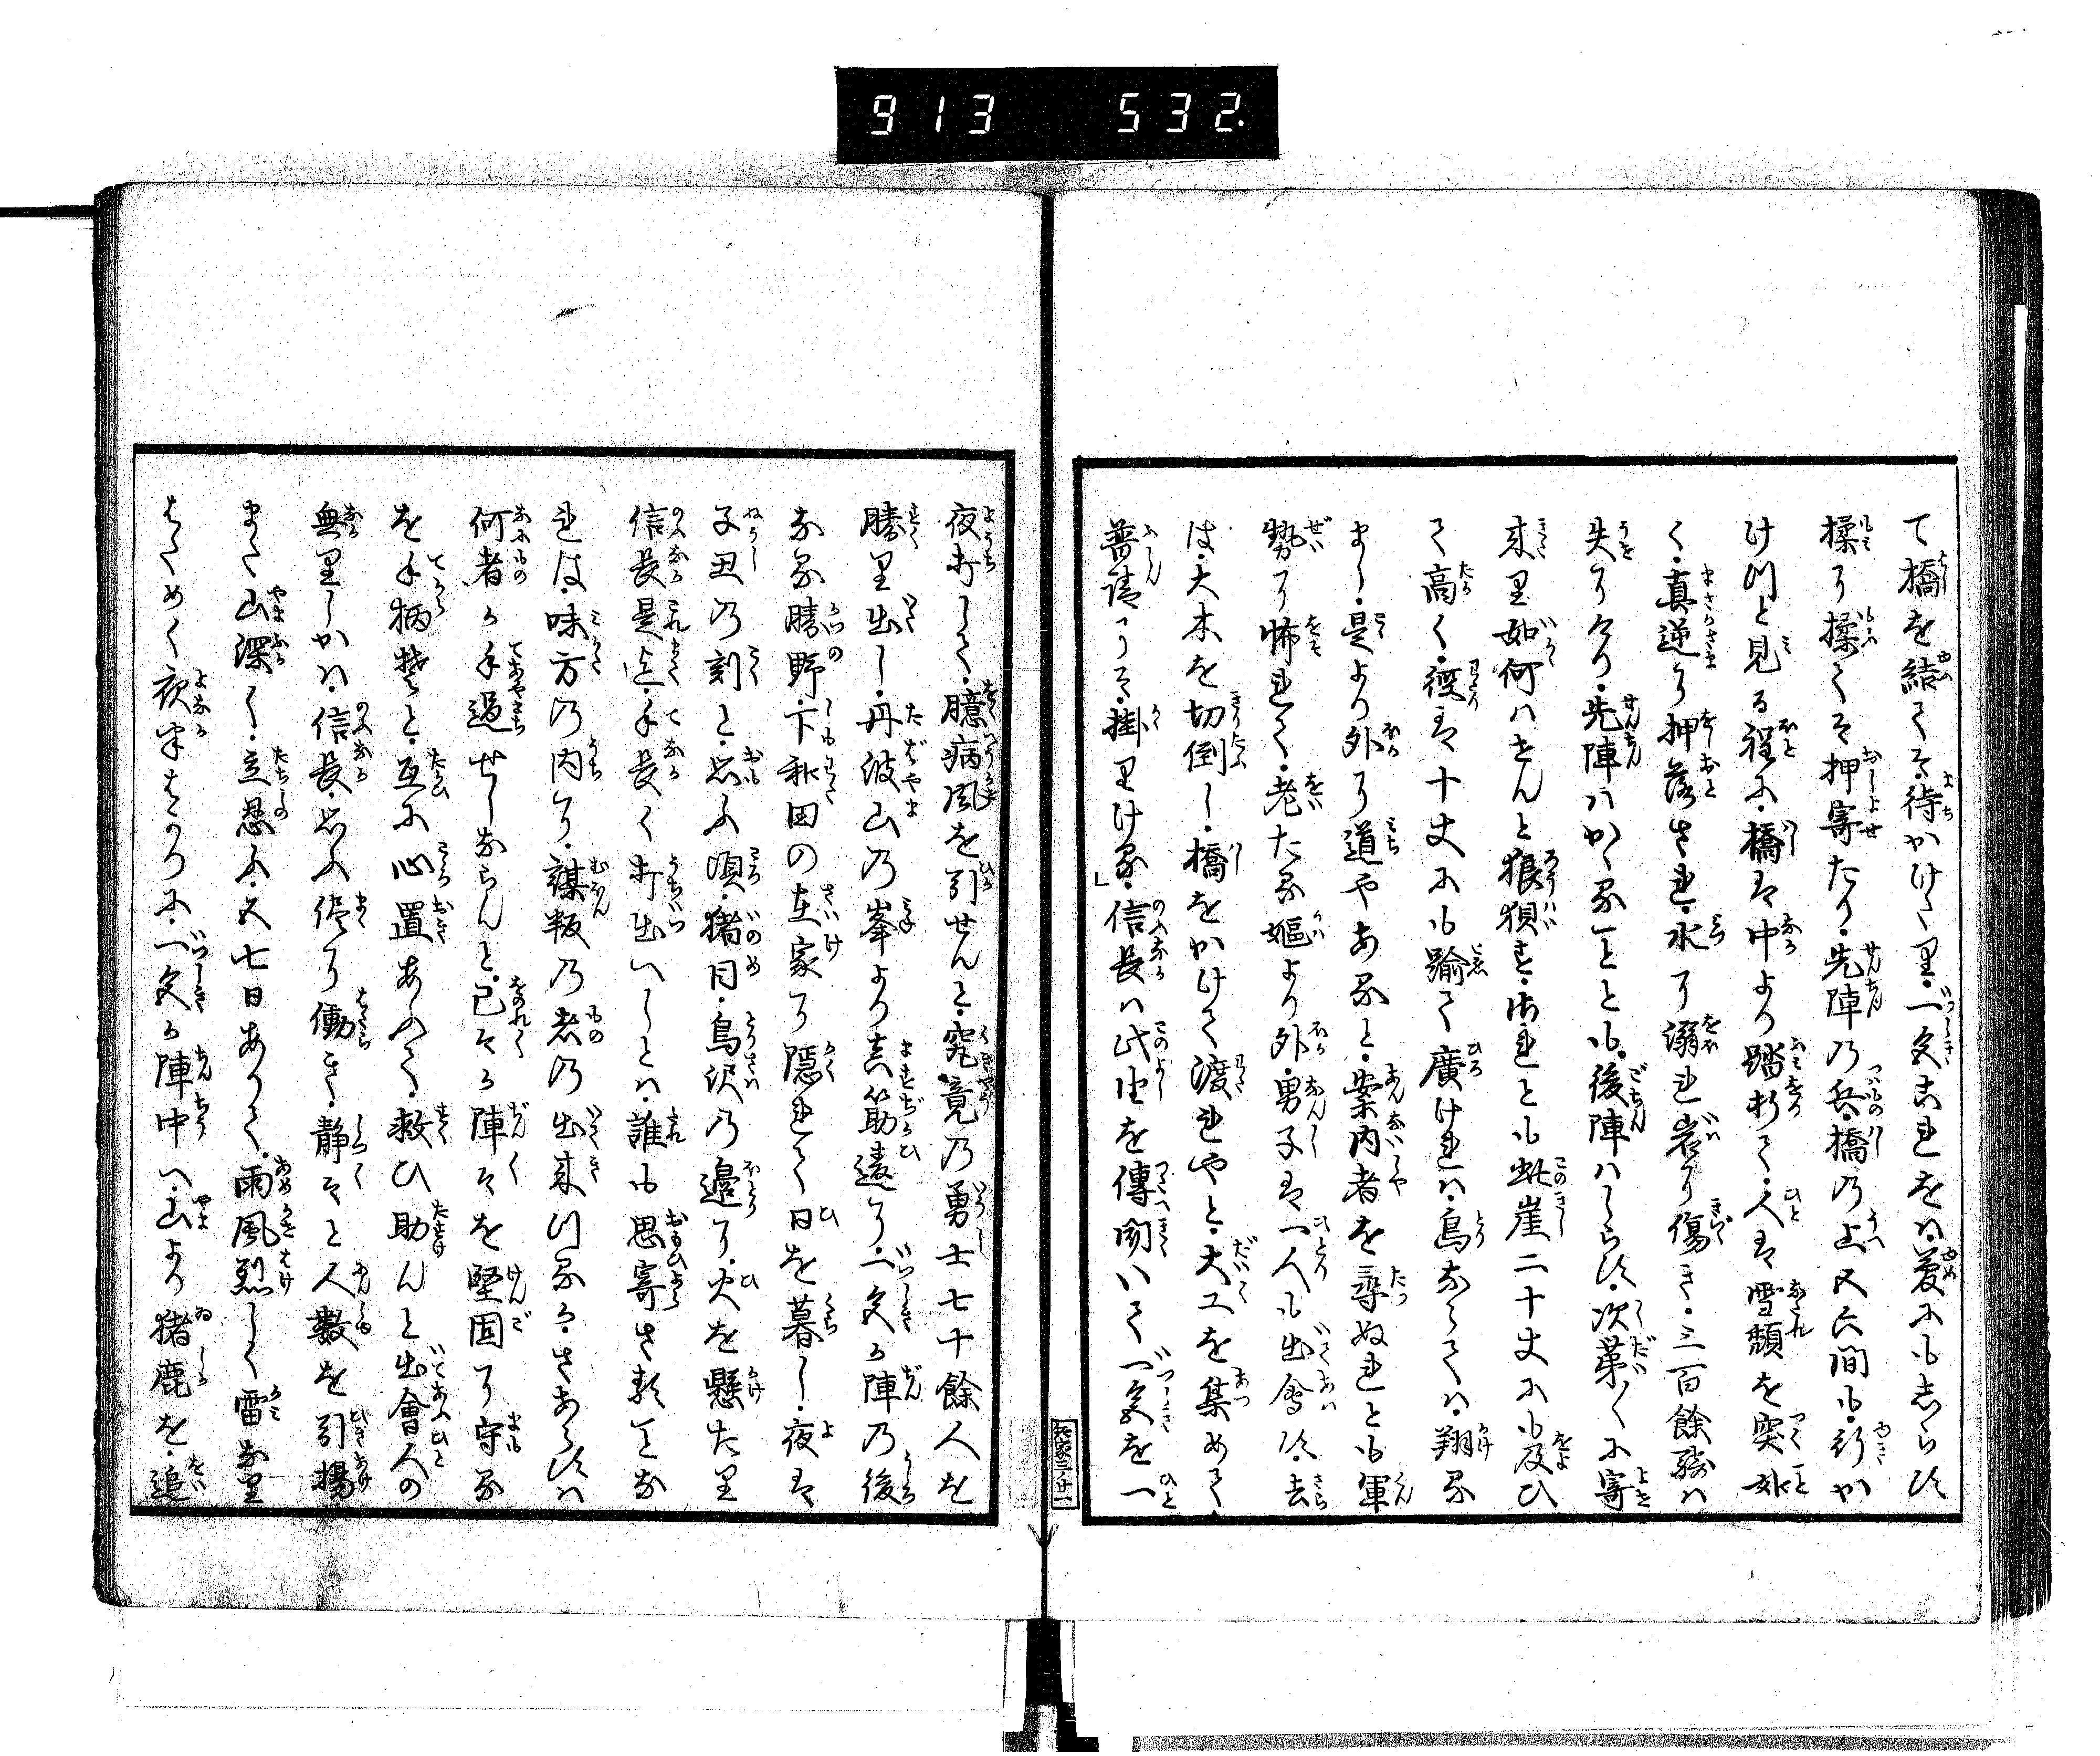 913 532.
て橋を結てぞ待かけたり・一色これをば夢にもしらず
揉に揉てぞ押寄たり・先陣の兵・橋の上五六間も・行か
けつと見る程に・橋は中より踏折て・人は雪頽を突如
く・真逆に押落され・水に溺れ岩に傷き・三百餘騎は
失にけり・先陣はかくる」とも・後陣はしらず・次第〳〵に寄
来り如何はせんと狼狽す・されども此崖二十丈にも及び
て高く・径は十丈にも踰て廣ければ・鳥ならでは・翔る
まじ・是より外に道やあると・案内者を尋ぬれども軍
勢に怖れて・老たる嫗より外・男子は一人も出会ず・去
ば・大木を切倒し・橋をかけて渡れやと・大工を集めて・
普請にぞ・掛りける」・信長は此由を傳聞いて一色を一
夜討して・臆病風を引せんと・究竟の勇士七十餘人を
勝り出し・丹波山の峯より真筋違に・一色が陣の後
なる勝野・下和田の在家に隠れて日を暮し・夜は
子丑の刻と・思ふ頃・猪目・鳥沢の邊に・火を懸たり
信長是迄・手長く打出いしとは・誰も思寄さ
れば・味方の内に・謀叛の者の出来つるか・さあらずは
何者か手過せしならんと・己そが陣〳〵を堅固に守る
を手柄楚と・互に心置あふて・救ひ助んと出會人の
無りしかば・信長・思ふ侭に働き・静々と人数を引揚
また山深く・立忍ふ・又七日ありて・雨風烈しく雷なり
はためく夜半ばかりに・一色が陣中へ・山より猪鹿を追